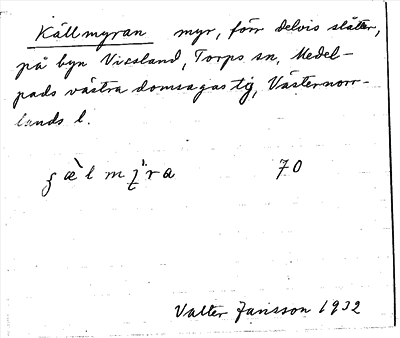 Källmyran myr, förr delvis slåtter,
på byn Viksland, Torps sn, Medel-
pads västra domsagas tg, Västernorr-
lands l.
70
Valter Jansson 1932